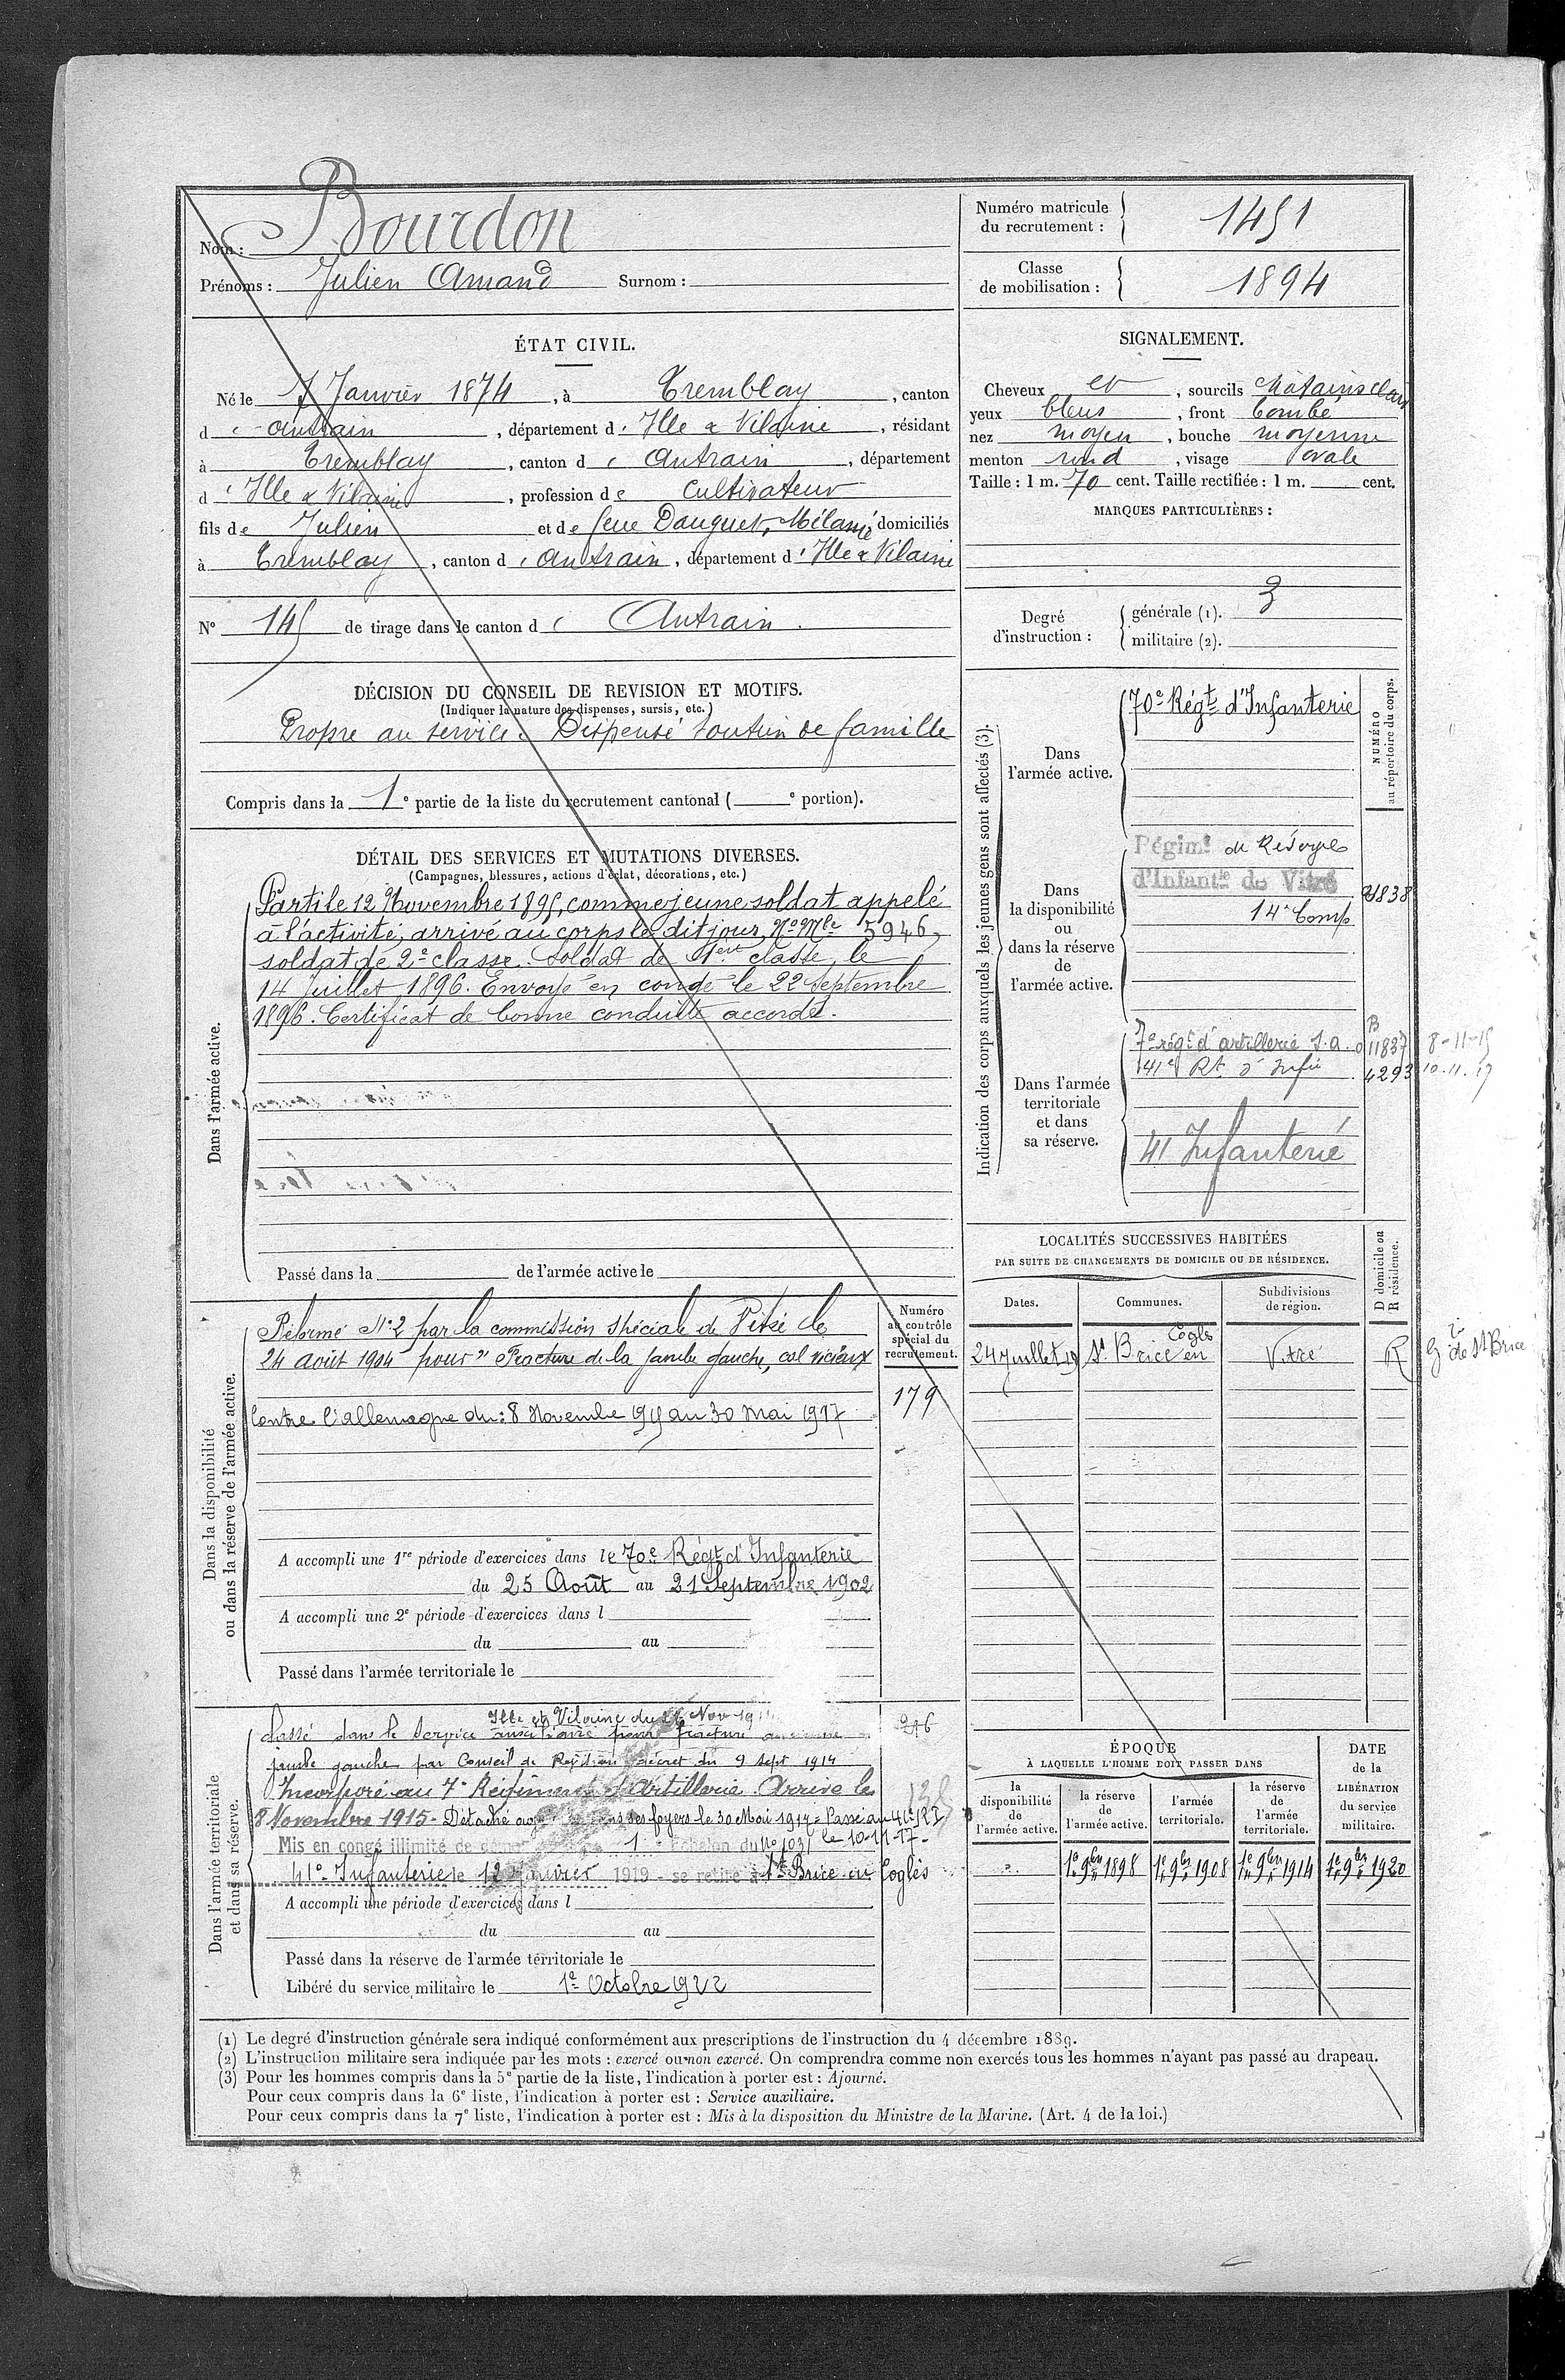 Nom : Bourdon
Prénoms : Julien Amand Surnom :
Numéro matricule du recrutement : 1451
Classe de mobilisation : 1894
ÉTAT CIVIL.
Né le 7 Janvier 1874, à Tremblay, canton
d'Antrain, département d'Ille & Vilaine, résidant
à Tremblay, canton d'Antrain, département
d'Ille & Vilaine, profession de Cultivateur
fils de Julien et de feue Dauguet, Mélanie domiciliés
à Tremblay, canton d'Antrain, département d'Ille & Vilaine
N° 145 de tirage dans le canton d'Antrain.
SIGNALEMENT.
Cheveux et, sourcils châtains clairs
yeux bleus, front bombé
nez moyen, bouche moyenne
menton rond, visage ovale
Taille : 1 m. 70 cent. Taille rectifiée : 1 m. cent.
MARQUES PARTICULIÈRES :
Degré d'instruction : générale (1). 3
militaire (2).
DÉCISION DU CONSEIL DE REVISION ET MOTIFS.
(Indiquer la nature des dispenses, sursis, etc.)
Propre au service. Dispensé soutien de famille
Compris dans la 1e partie de la liste du recrutement cantonal ( e portion).
DÉTAIL DES SERVICES ET MUTATIONS DIVERSES.
(Campagnes, blessures, actions d'éclat, décorations, etc.)
Dans l'armée active.
Parti le 12 Novembre 1895, comme jeune soldat appelé
à l'activité, arrivé au corps le dit jour, No Mle 5946,
soldat de 2e classe. Soldat de 1ère classe, le
14 Juillet 1896. Envoyé en congé le 22 Septembre
1896. Certificat de bonne conduite accordé.
Passé dans la de l'armée active le
Indication des corps auxquels les jeunes gens sont affectés (3).
NUMÉRO au répertoire du corps.
Dans l'armée active.
70e Régt d'Infanterie
Dans la disponibilité ou dans la réserve de l'armée active.
Régimt de Réserve
d'Infantie de Vitré
14e Comp
Dans l'armée territoriale et dans sa réserve.
7e régt d'artillerie 11837 8-11-15
41e Rt d'Infie 4293 10.11.17
41 Infanterie
LOCALITÉS SUCCESSIVES HABITÉES
PAR SUITE DE CHANGEMENTS DE DOMICILE OU DE RÉSIDENCE.
Dates. Communes. Subdivisions de région. D domicile ou R résidence.
24 juillet 19 St Brice en Cogles Vitré R
de St Brice
Dans la disponibilité ou dans la réserve de l'armée active.
Numéro au contrôle spécial du recrutement.
Réformé No 2 par la commission spéciale de Vitré le
24 août 1904 pour "Fracture de la jambe gauche, cal vicieux
179
Contre l'allemagne du : 8 Novembre 1915 au 30 Mai 1917
A accompli une 1re période d'exercices dans le 70e Régt d'Infanterie
du 25 Août au 21 Septembre 1902
A accompli une 2e période d'exercices dans l
du au
Passé dans l'armée territoriale le
Dans l'armée territoriale et dans sa réserve.
Ille et Vilaine du Nov
Classé dans le Service auxiliaire pour fracture ancienne
jambe gauche par Conseil de Révision décret du 9 Sept 1914
Incorporé au 7e Régiment d'Artillerie. Arrivé le
8 Novembre 1915 - Détaché ses foyers le 30 Mai 1917 = Passé au 41e RI
le 10-11-17 -
Mis en congé illimité de 1e Echelon du No 1031
41e Infanterie le 12 Janvier 1919 - se retire à St Brice en Coglès
A accompli une période d'exercices dans l
du au
Passé dans la réserve de l'armée territoriale le
Libéré du service militaire le 1er Octobre 1922
ÉPOQUE
À LAQUELLE L'HOMME DOIT PASSER DANS
la disponibilité de l'armée active. la réserve de l'armée active. l'armée territoriale. la réserve de l'armée territoriale.
DATE de la LIBÉRATION du service militaire.
1er 9bre 1898 1er 9bre 1908 1er 9bre 1914 1er 9bre 1920
(1) Le degré d'instruction générale sera indiqué conformément aux prescriptions de l'instruction du 4 décembre 1889.
(2) L'instruction militaire sera indiquée par les mots : exercé ou non exercé. On comprendra comme non exercés tous les hommes n'ayant pas passé au drapeau.
(3) Pour les hommes compris dans la 5e partie de la liste, l'indication à porter est : Ajourné.
Pour ceux compris dans la 6e liste, l'indication à porter est : Service auxiliaire.
Pour ceux compris dans la 7e liste, l'indication à porter est : Mis à la disposition du Ministre de la Marine. (Art. 4 de la loi.)